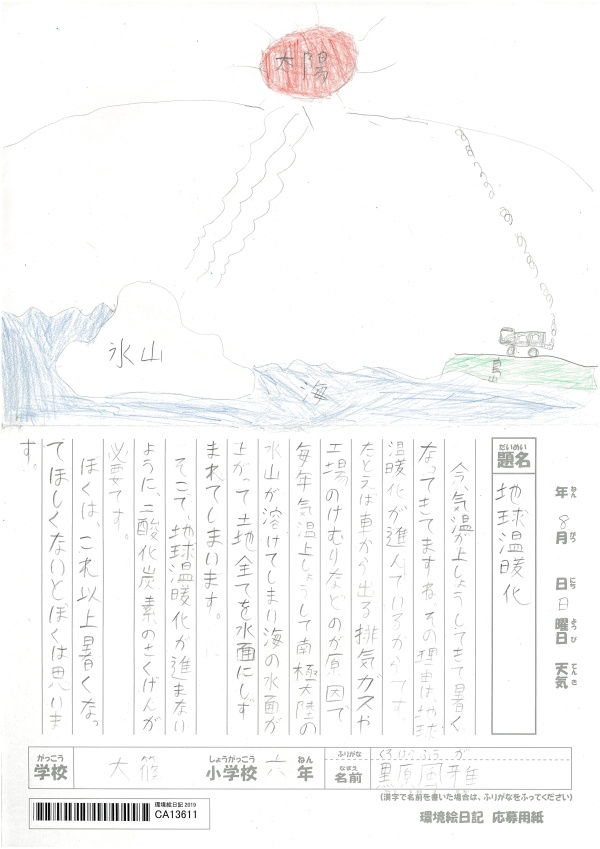 太陽
氷山
海
島
年 8月 日 日曜日 天気
ねん がつ にち ようび てんき
だいめい
題名
地球温暖化
今、気温が上しょうしてきて暑く
なってきてますね。その理由は、地球
温暖化が進んでいるからです。
たとえば車から出る排気ガスや
工場のけむりなどのが原因で
毎年気温上しょうして南極大陸の
氷山が溶けてしまい海の水面が
上がって土地全てを水面にしず
まれてしまいます。
そこで、地球温暖化が進まない
ように、二酸化炭素のさくげんが
必要です。
ぼくは、これ以上暑くなっ
てほしくないとぼくは思いま
す。
がっこう しょうがっこう ねん
学校 大篠 小学校 六 年
ふりがな
なまえ
名前 黒原 雅
(漢字で名前を書いた場合は、ふりがなをふってください)
環境絵日記 2019
CA13611
環境絵日記 応募用紙